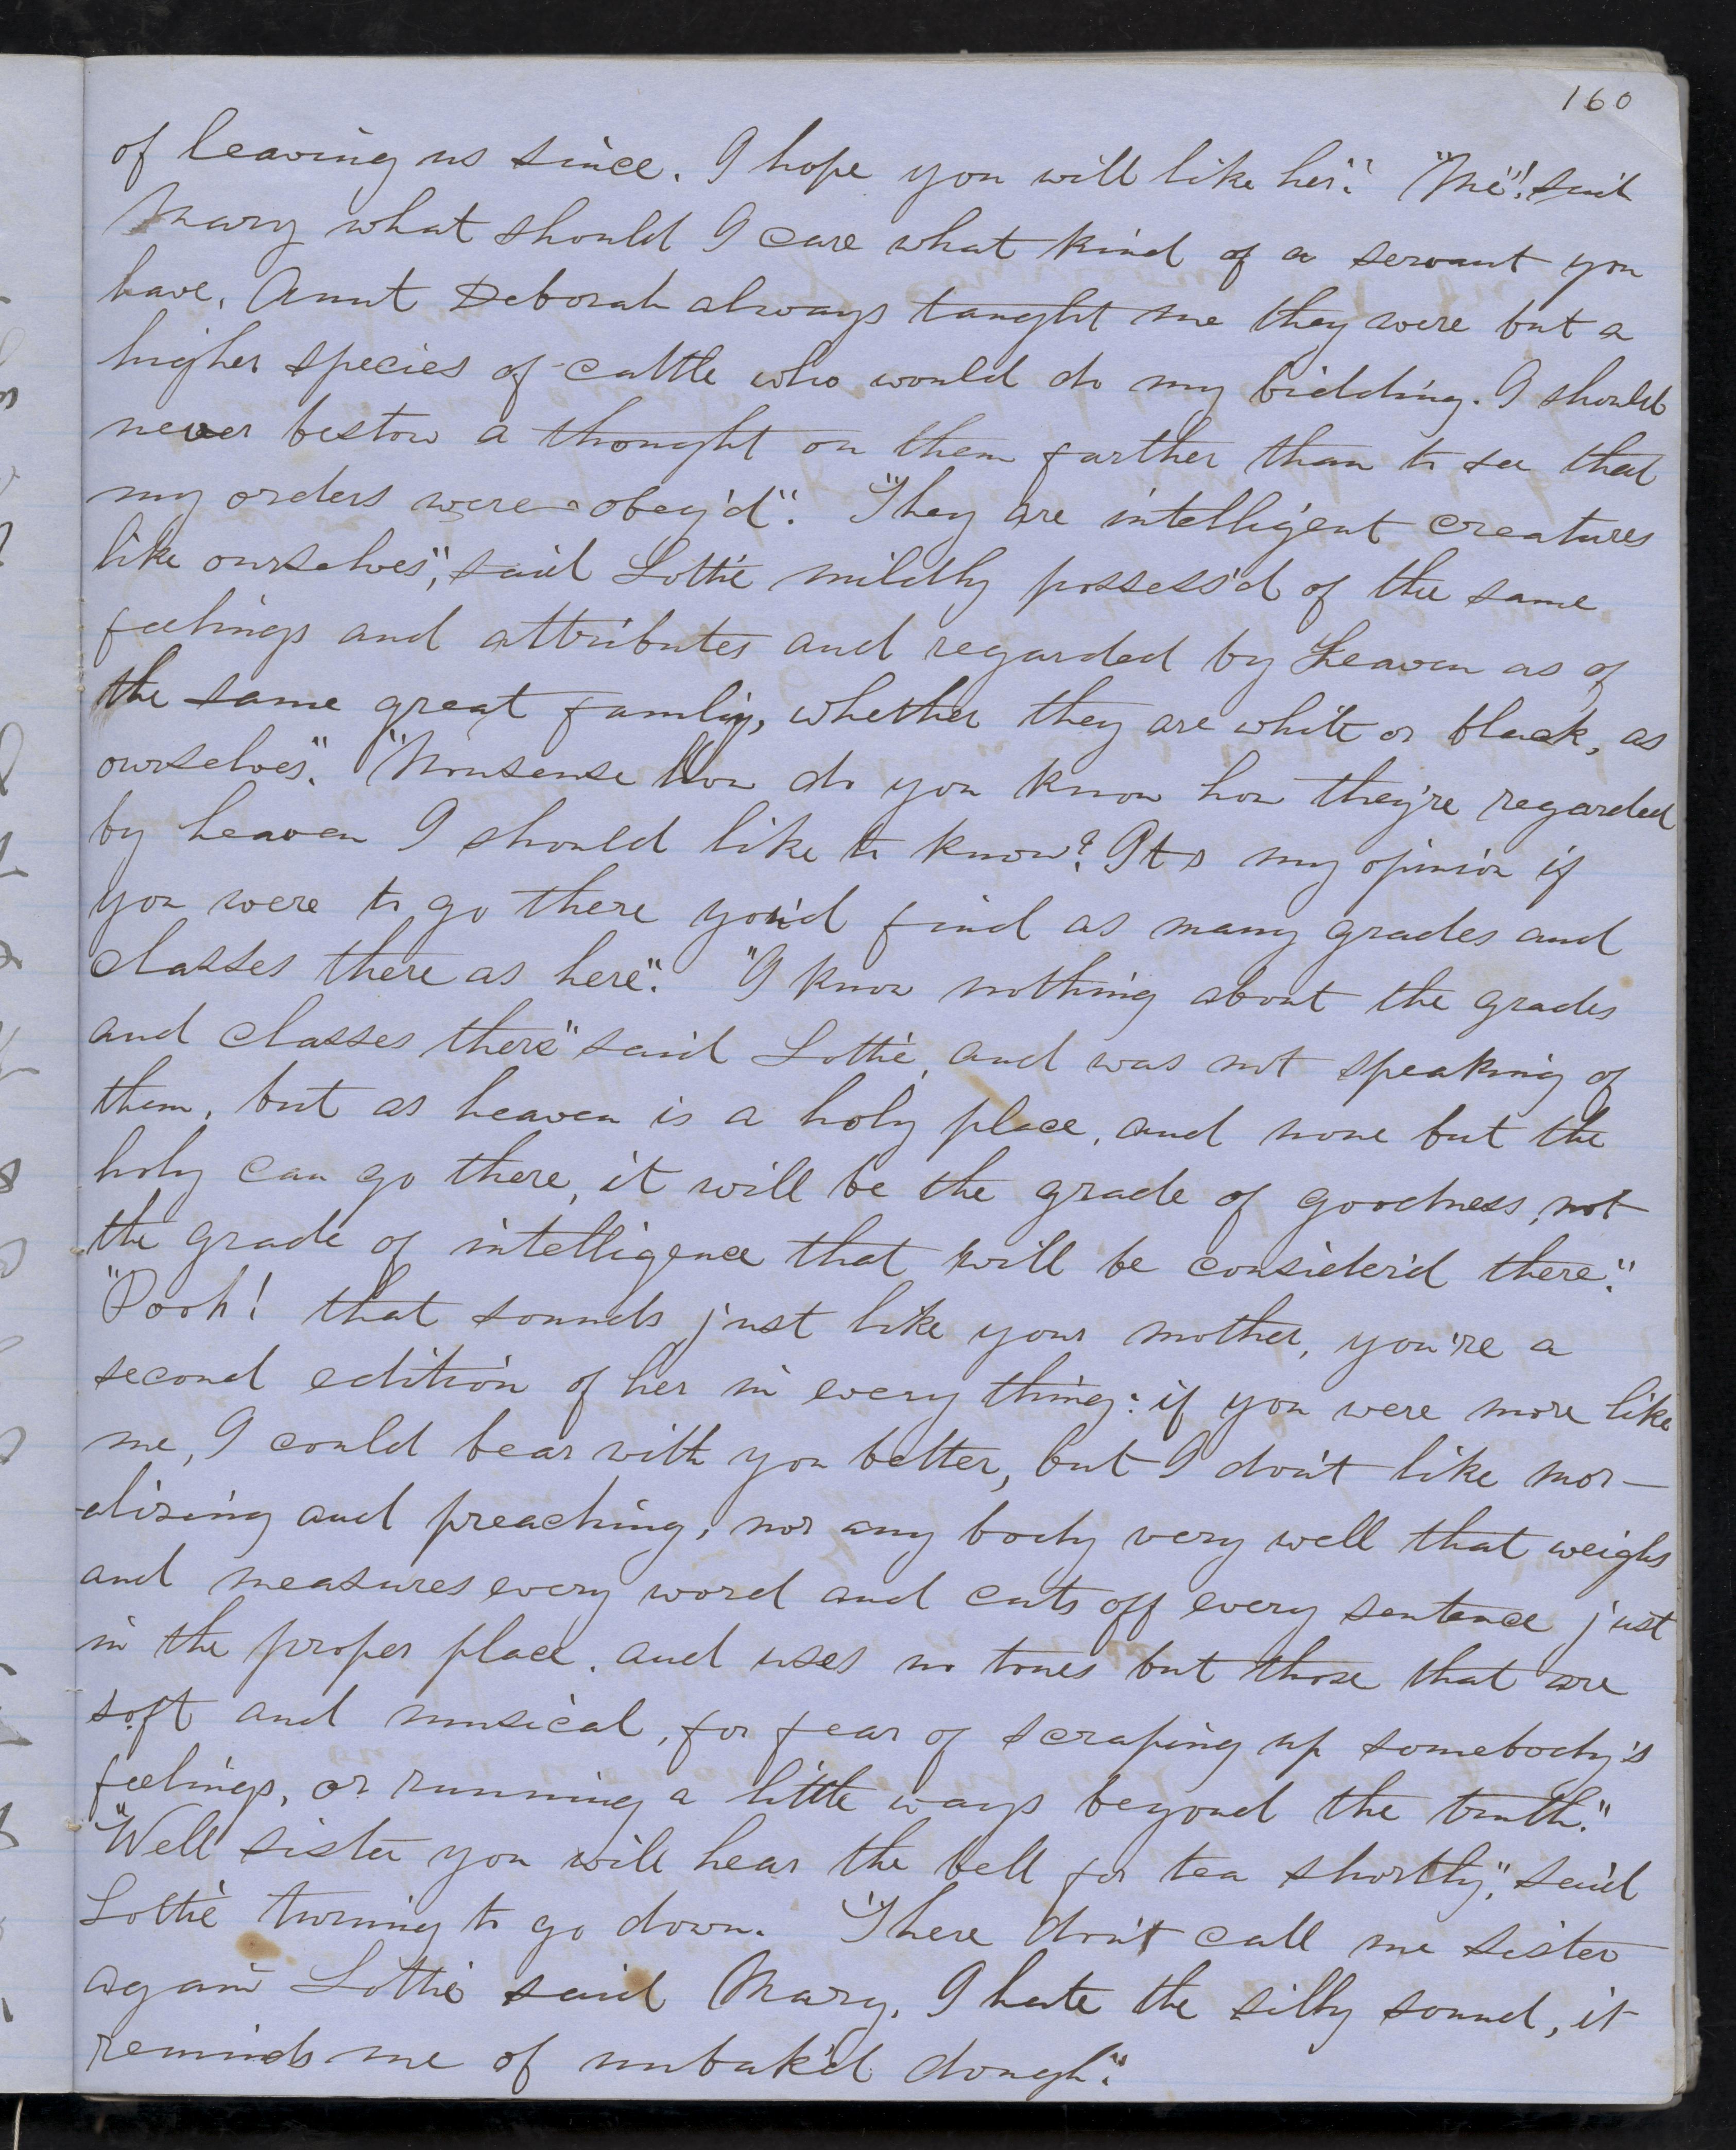 160
of leaving us since. I hope you will like her". "Me"! said
Mary what should I care what kind of a servant you
have. Aunt Deborah always taught me they were but a
higher species of cattle who would do my bidding. I should
never bestow a thought on them farther than to see that
my orders were obey'd". "They are intelligent creatures
like ourselves", said Lottie mildly possess'd of the same
feelings and attributes and regarded by Heaven as of
the same great family, whether they are white or black, as
ourselves". "Nonsense how do you know how they're regarded
by heaven I should like to know? Its my opinion if
you were to go there you'd find as many grades and
classes there as here". "I know nothing about the grades
and classes there" said Lottie, and was not speaking of
them, but as heaven is a holy place, and none but the
holy can go there, it will be the grade of goodness, not
the grade of intelligence that will be consider'd there".
"Pooh! that sounds just like your mother, you're a
second edition of her in every thing: if you were more like
me, I could bear with you better, but I don't like mor-
-alizing and preaching, nor any body very well that weighs
and measures every word and cuts off every sentence just
in the proper place. and uses no tones but those that are
soft and musical, for fear of scraping up somebody's
feelings, or running a little ways beyond the truth."
"Well sister you will hear the bell for tea shortly", said
Lottie turning to go down. "There don't call me sister
again Lottie said Mary, I hate the silly sound, it
reminds me of unbak'd dough".